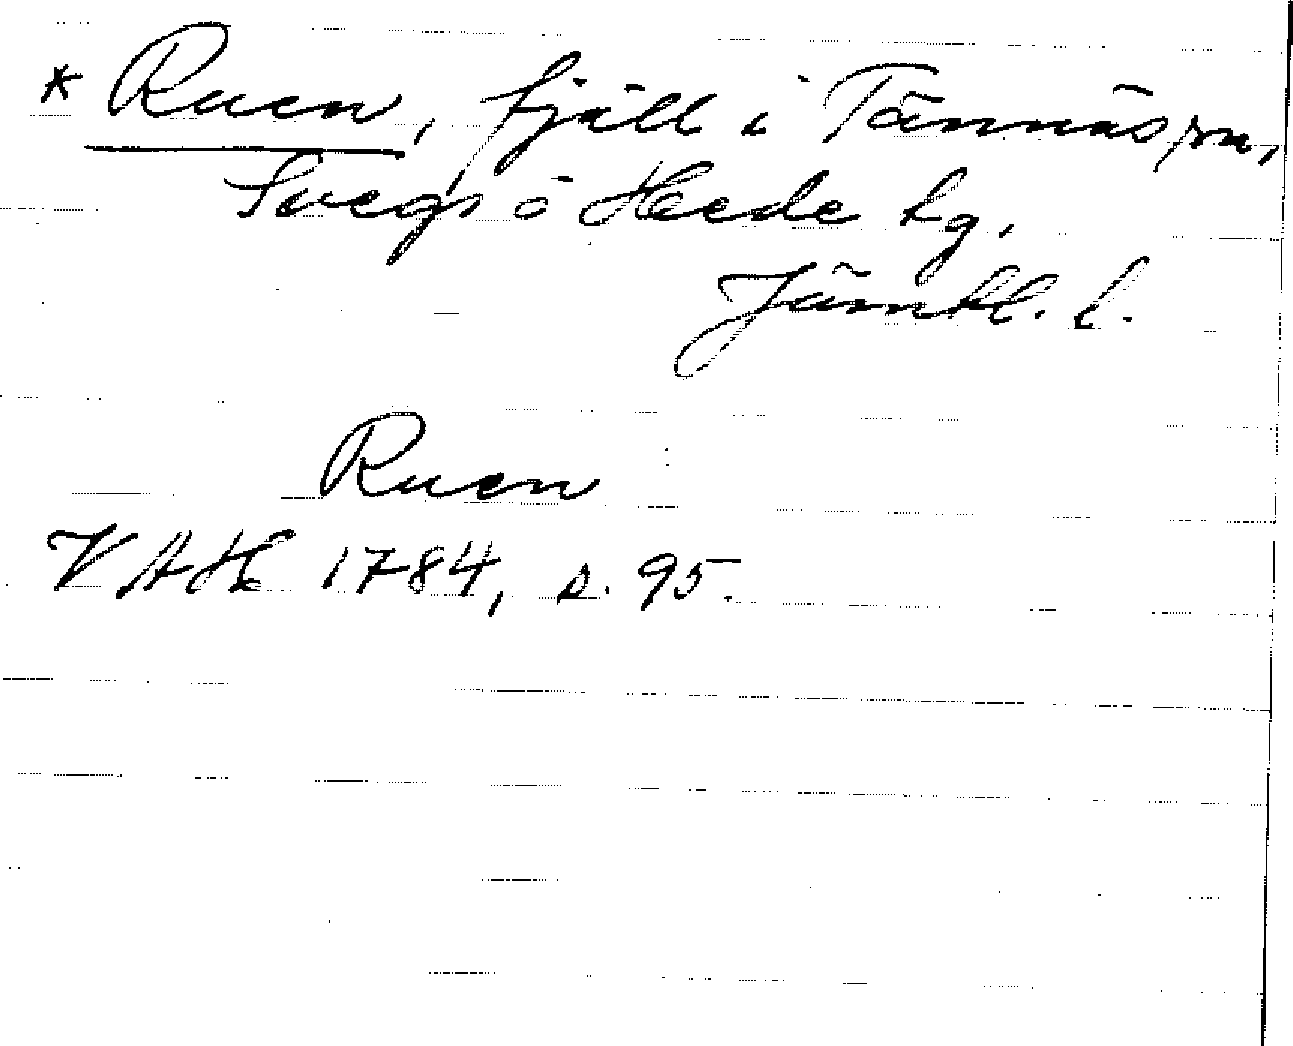 * Ruen, fjäll i Tännäs sn,
Svegs o Hede tg.
Jämtl. l.
Ruen
VAH 1784, s. 95.